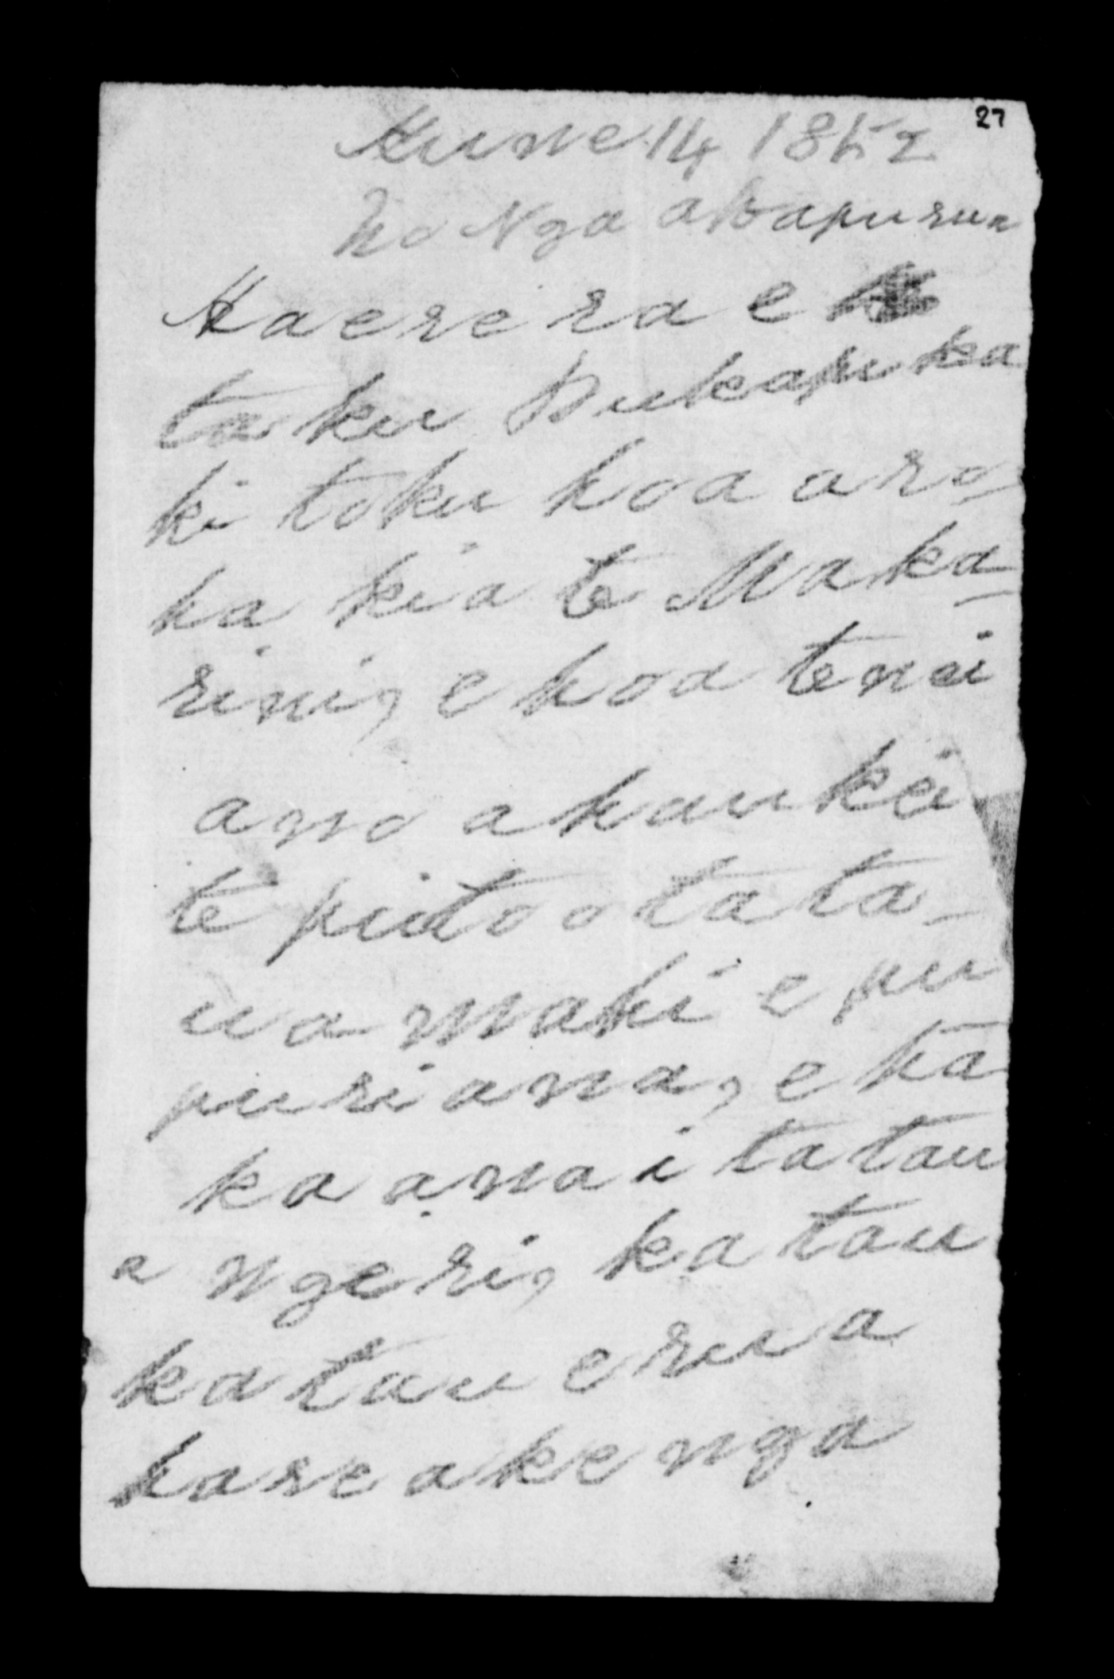 27
Hune 14 1852
No Nga akapurua
Haere ra e
taku Pukapuka
ki toku hoa aro-
ha kia te Maka-
rini, e hoa tenei
ano ahau kei
te piito o tata-
ua mahi e pu
puri ana, e ha
ka ana i ta tau
a ngeri, ka tau
ka tau e rua
kare ake nga